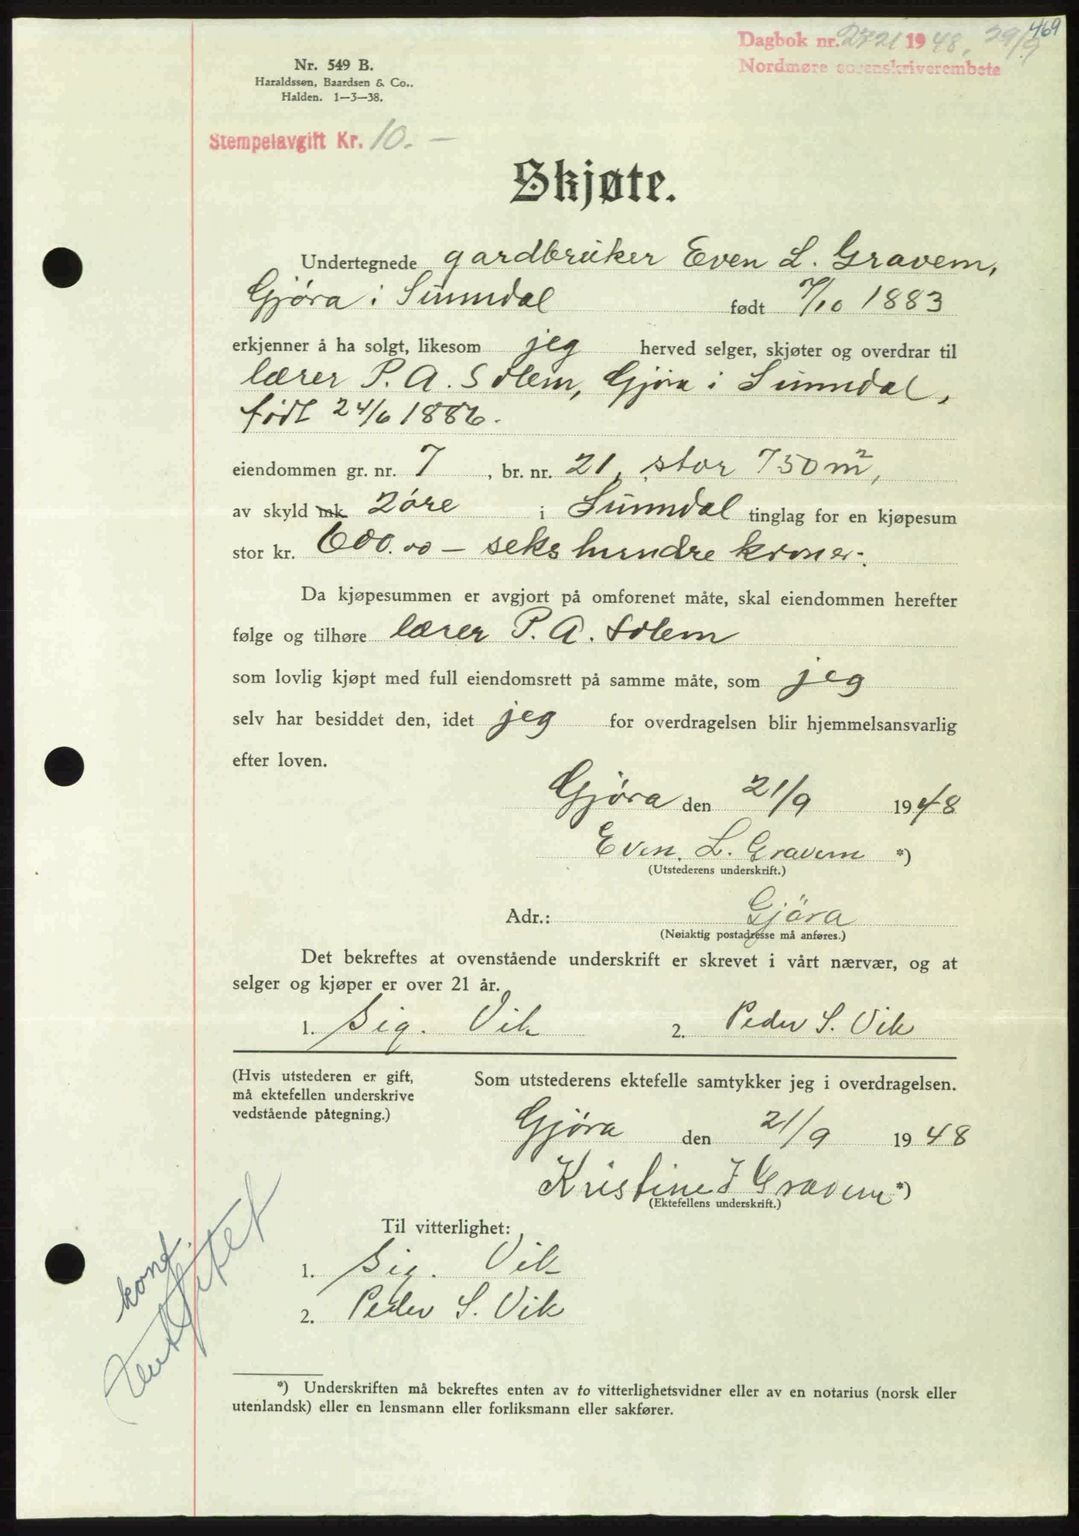 469
Dagbok nr. 2721 1948, 29/9
Nordmøre sorenskriverembete
Nr. 549 B.
Haraldssen, Baardsen & Co..
Halden. 1—3—38.
Stempelavgift Kr. 10. —
Skjøte.
Undertegnede gardbruker Even L. Gravem,
Gjøra i Sunndal født 7/10 1883
erkjenner å ha solgt, likesom jeg herved selger, skjøter og overdrar til
lærer P. A. Solem, Gjøra i Sunndal,
født 24/6 1886.
eiendommen gr. nr. 7, br. nr. 21, stor 750 m²,
av skyld mk 2 øre i Sunndal tinglag for en kjøpesum
stor kr. 600.00 — seks hundre kroner.
Da kjøpesummen er avgjort på omforenet måte, skal eiendommen herefter
følge og tilhøre lærer P. A. Solem
som lovlig kjøpt med full eiendomsrett på samme måte, som jeg
selv har besiddet den, idet jeg for overdragelsen blir hjemmelsansvarlig
efter loven.
Gjøra den 21/9 1948
Even. L. Gravem *)
(Utstederens underskrift.)
Adr.: Gjöra
(Nøiaktig postadresse må anføres.)
Det bekreftes at ovenstående underskrift er skrevet i vårt nærvær, og at
selger og kjøper er over 21 år.
1. Sig. Vik 2. Peder S. Vik
(Hvis utstederen er gift, Som utstederens ektefelle samtykker jeg i overdragelsen.
må ektefellen underskrive
vedstående påtegning.)
Gjøra den 21/9 1948
Kristine J Gravem *)
(Ektefellens underskrift.)
Til vitterlighet:
1. Sig. Vik
2. Peder S. Vik
konf.
*) Underskriften må bekreftes enten av to vitterlighetsvidner eller av en notarius (norsk eller
utenlandsk) eller en lensmann eller forliksmann eller sakfører.